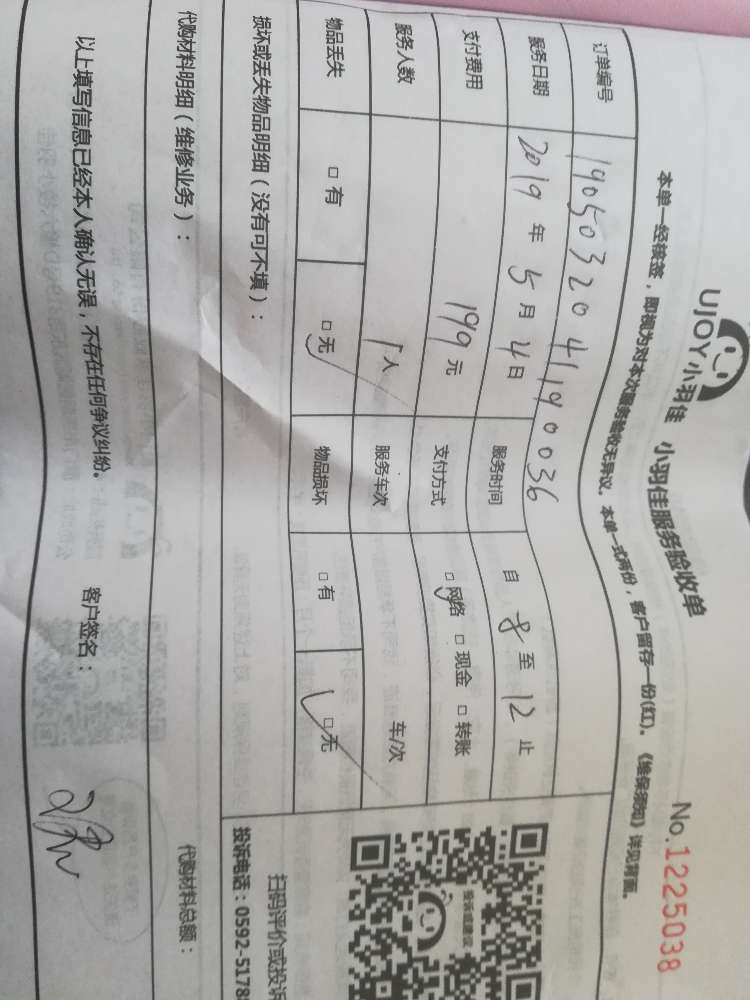 UJOY小羽佳 小羽佳服务验收单 No.1225038
本单一经核签，即视为对本次服务验收无异议。本单一式两份，客户留存一份(红)。《维保须知》详见背面。
订单编号 1905032041190036
服务日期 2019年5月4日 服务时间 自8至12止
支付费用 199元 支付方式 □网络 □现金 □转账
服务人数 1人 服务车次 车/次
物品丢失 □有 □无 物品损坏 □有 □无
损坏或丢失物品明细（没有可不填）：
投诉或建议
扫码评价或投诉
投诉电话：0592-5178
代购材料明细（维修业务）： 代购材料总额：
以上填写信息已经本人确认无误，不存在任何争议纠纷。 客户签名：